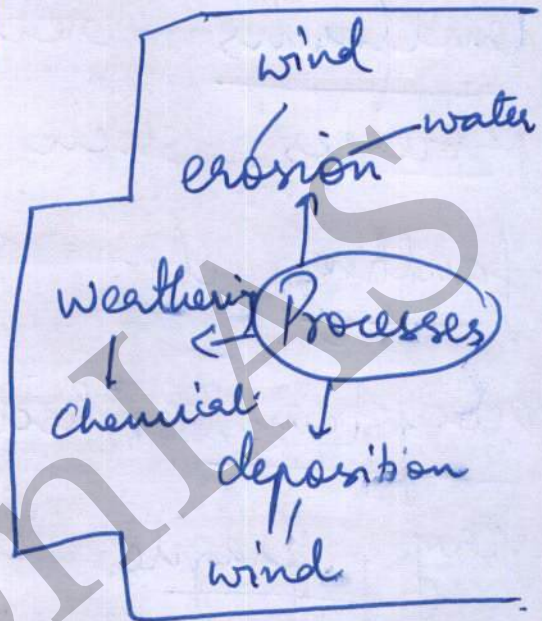 wind
water
erosion
weathering
Processes
chemical
deposition
wind
nIAS